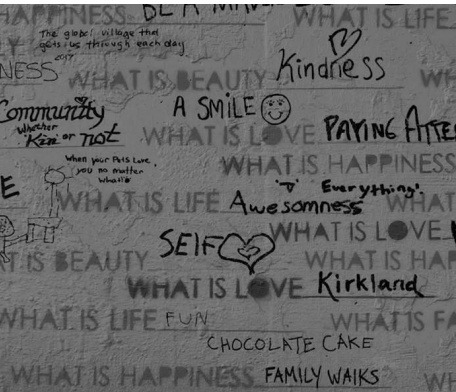 HAPPINESS
BE A
WHAT IS LIFE
The global village that
gets us through each day
2017
NESS
WHAT IS BEAUTY Kindness
WH
Community
Whether
"Kin" or not
A SMILE
WHAT IS LOVE PAYING ATTE
When your Pets Love
you no matter
what's
WHAT IS HAPPINESS
E
WHAT IS LIFE Awesomness
Everything.
WHAT
SELF
WHAT IS LOVE
T IS BEAUTY
WHAT IS HAP
WHAT IS LOVE Kirkland
WHAT IS LIFE FUN
WHAT IS FA
CHOCOLATE CAKE
WHAT IS HAPPINESS FAMILY WALKS
WH